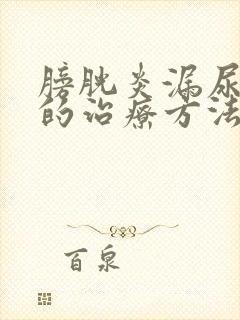 膀胱炎漏尿
的治疗方法
百泉